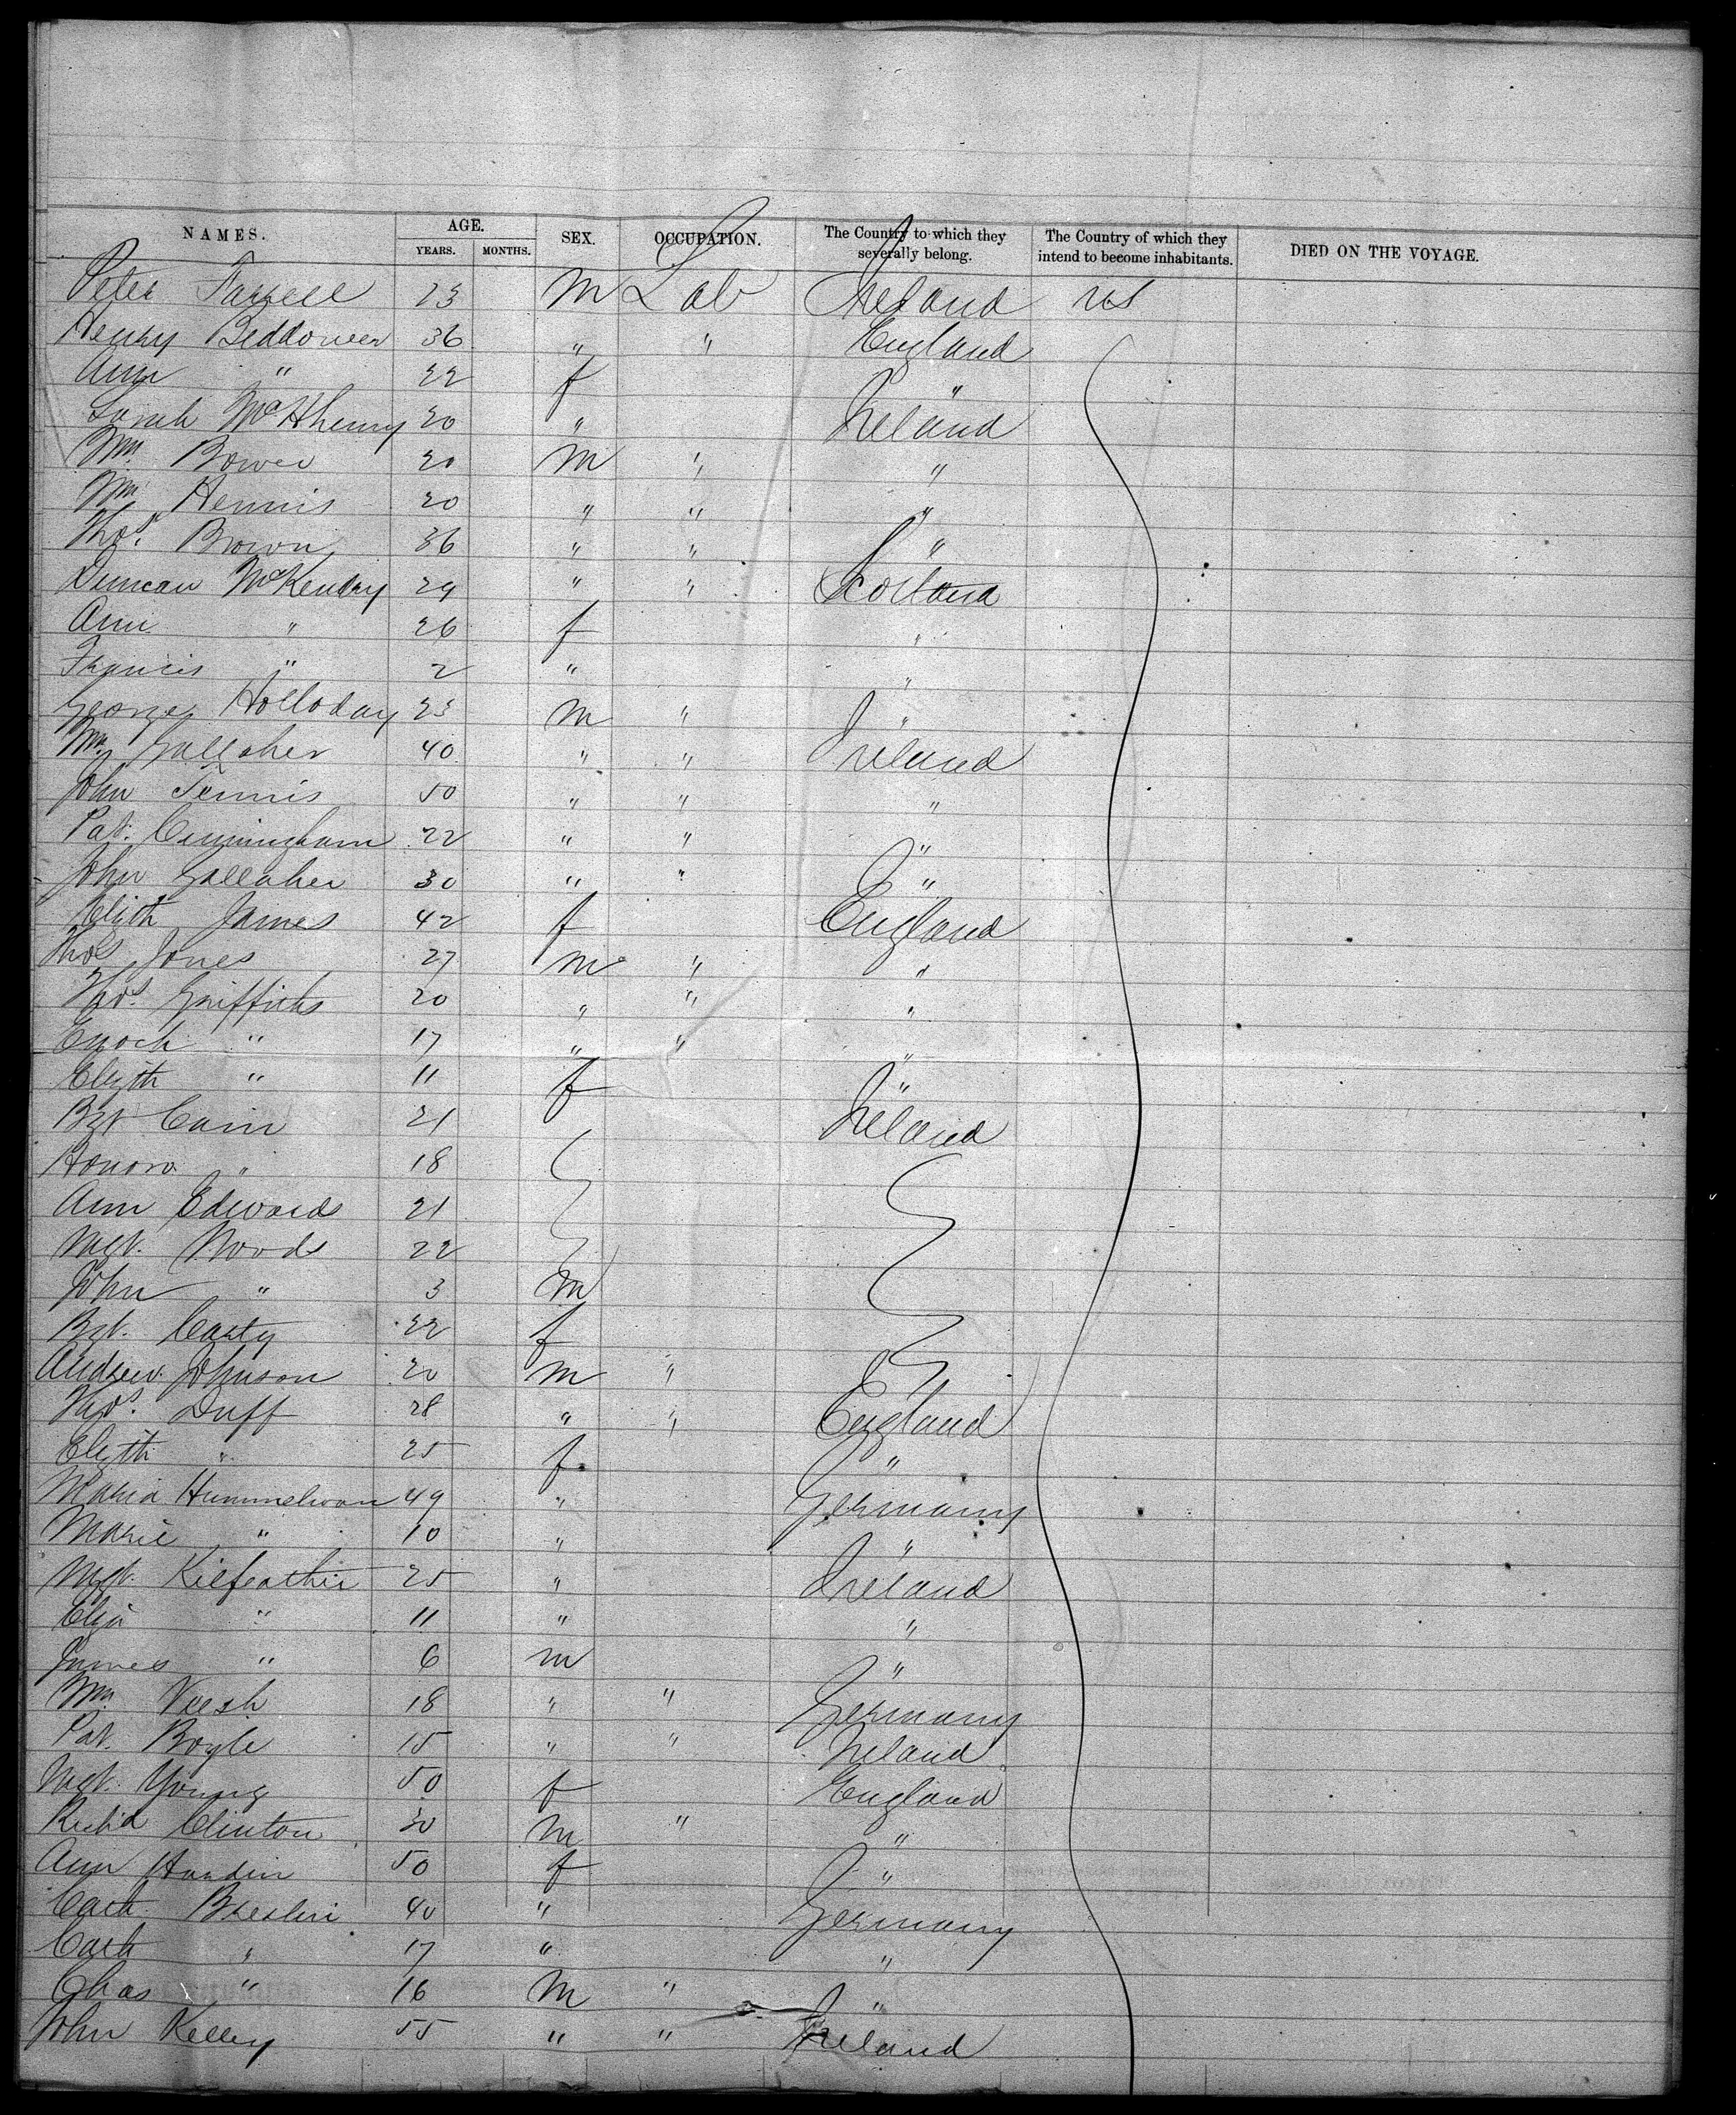 NAMES. AGE. YEARS. MONTHS. SEX. OCCUPATION. The Country to which they severally belong. The Country of which they intend to become inhabitants. DIED ON THE VOYAGE.
Peter Farrell 23 M Lab Ireland US
Henry Beddower 36 " " England
Ann " 22 f "
Sarah McHhenry 20 " Ireland
Wm Bower 20 M " "
Wm Hennis 20 " " "
Thos. Brown 36 " " "
Duncan McKendry 29 " " Scotland
Ann " 26 f "
Francis " 2 " "
George Holloday 23 M " "
Wm Gallaher 40 " " Ireland
John Tennis 50 " " "
Pat. Cunningham 22 " " "
John Gallaher 30 " " "
Elizth James 42 f England
Thos Jones 27 m " "
Thos. Griffiths 20 " " "
Enoch " 17 " " "
Elizth " 11 f "
Bgt Cain 21 Ireland
Honora " 18
Ann Edwards 21
Mgt. Woods 22
John " 3 M
Bgt. Carty 22 f
Andrew Johnson 20 M "
Thos. Duff 28 " " England
Elizth " 25 f "
Maria Hummelwan 49 " Germany
Marie " 10 " "
Mgt. Kilfeather 25 " Ireland
Eliza " 11 " "
James " 6 m "
Wm 18 " " Germany
Pat. Boyle 15 " " Ireland
Mgt. Young 50 f England
Richd Clinton 30 M " "
Ann Hardin 50 f "
Cath Breslin 40 " Germany
Cath " 17 " "
Chas " 16 M " "
John Kelley 55 " " Ireland